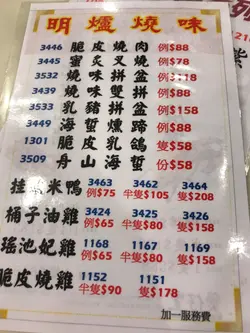 明爐燒味
3446 脆皮燒肉 例$88
3445 蜜炙叉燒 例$88
3532 燒味拼盆 例$118
3439 燒味雙拼 例$88
3533 乳豬拼盆 例$158
3449 海蜇燻蹄 例$88
1301 脆皮乳鴿 隻$58
3509 丹山海蜇 份$58
3463 3462 3464
米鴨 例$75 半隻$105 隻$208
3424 3425 3426
桶子油雞 例$65 半隻$80 隻$158
1168 1167 1169
瑤池妃雞 例$65 半隻$80 隻$158
1152 1151
脆皮燒雞 半隻$90 隻$178
加一服務費